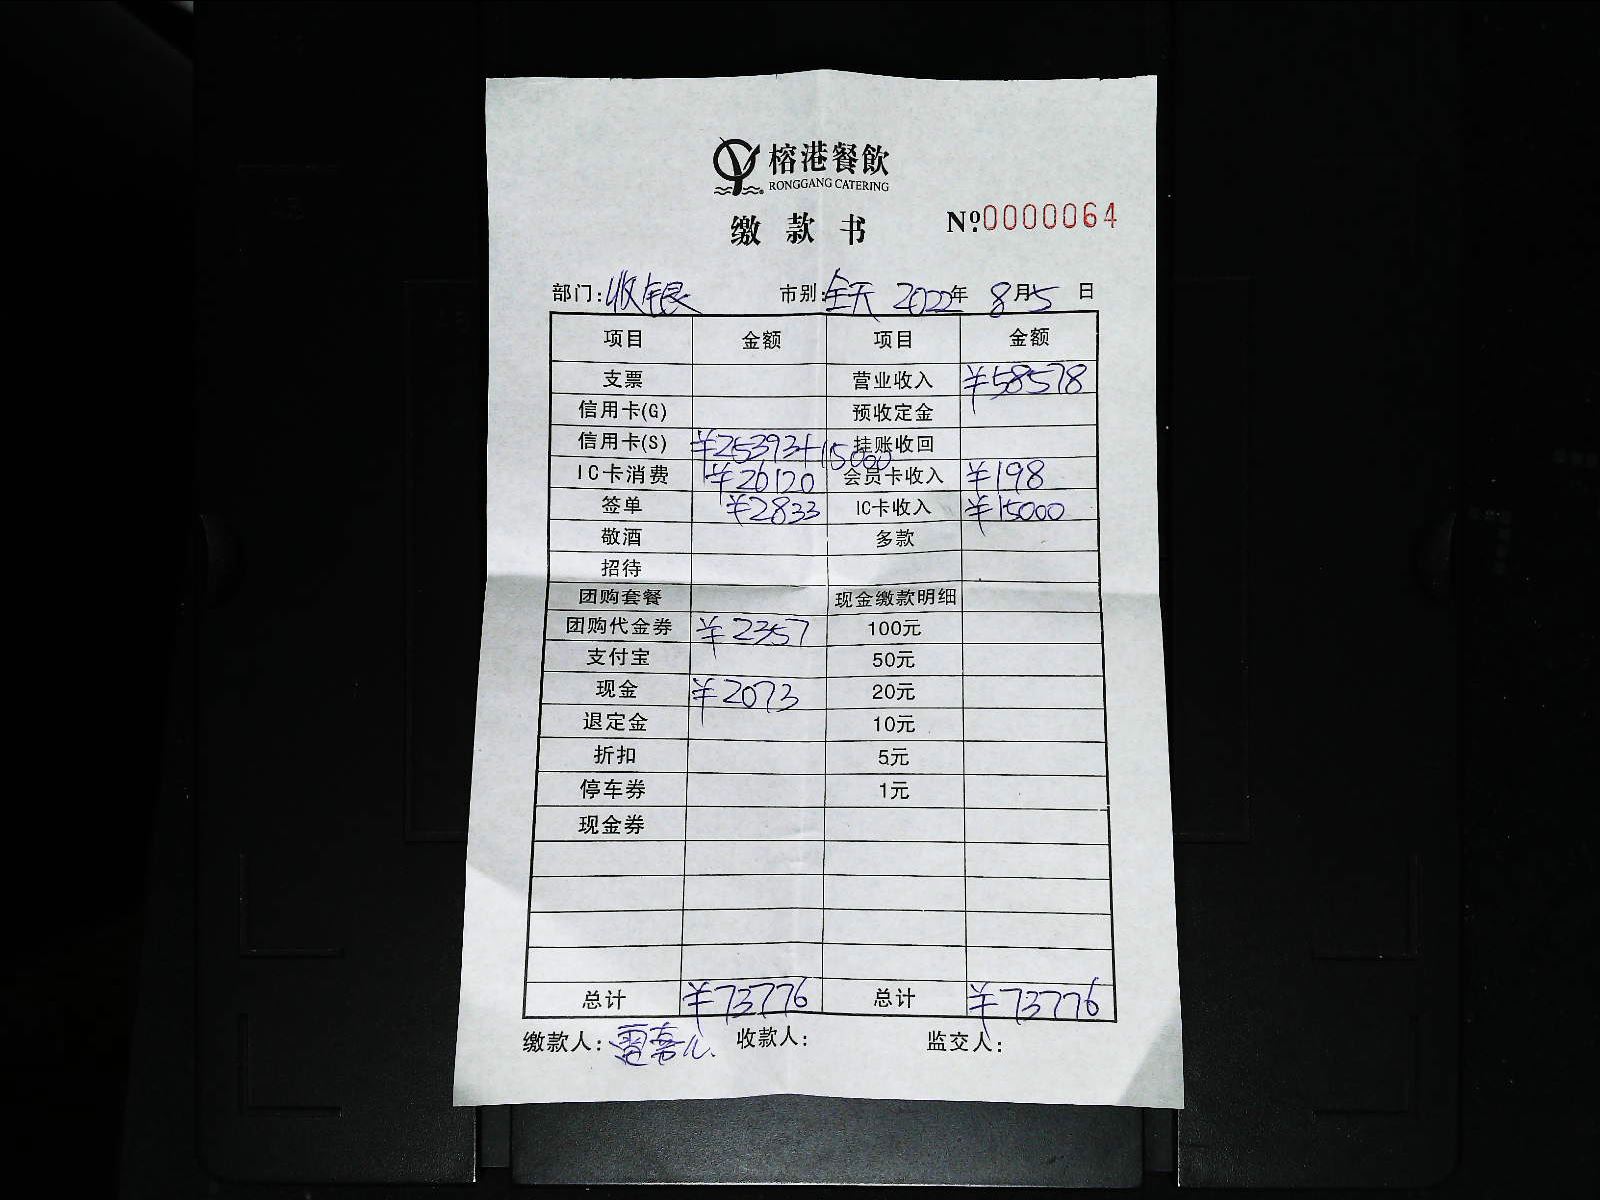 榕港餐飲
RONGGANG CATERING
缴款书 Nº.0000064
部门:收银 市别:全天 2022年 8月5日
项目 金额 项目 金额
支票 营业收入 ¥58578
信用卡(G) 预收定金
信用卡(S) ¥25393+15000 挂账收回
IC卡消费 ¥26120 会员卡收入 ¥198
签单 ¥2833 IC卡收入 ¥15000
敬酒 多款
招待
团购套餐 现金缴款明细
团购代金券 ¥2357 100元
支付宝 50元
现金 ¥2073 20元
退定金 10元
折扣 5元
停车券 1元
现金券
总计 ¥73776 总计 ¥73776
缴款人: 收款人: 监交人: